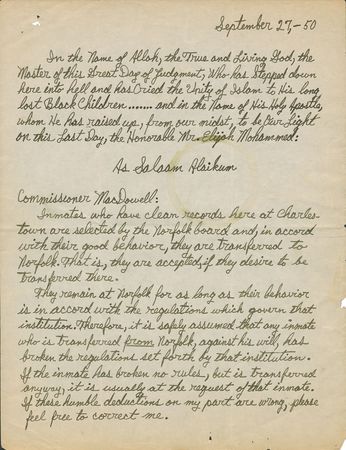 September 27,-50
In the Name of Allah, the True and Living God, the
Master of this Great Day of Judgment, Who has stepped down
here into hell and has Cried the Unity of Islam to His long
lost Black Children ....... and in the Name of His Holy Apostle,
whom He has raised up, from our midst, to be Our Light
on this Last Day, the Honorable Mr. Elijah Mohammed:
As Salaam Alaikum
Commissioner MacDowell:
Inmates who have clean records here at Charles-
town are selected by the Norfolk board and, in accord
with their good behavior, they are transferred to
Norfolk. That is, they are accepted, if they desire to be
transferred there.
They remain at Norfolk for as long as their behavior
is in accord with the regulations which govern that
institution. Therefore, it is safely assumed that any inmate
who is transferred from Norfolk, against his will, has
broken the regulations set forth by that institution.
If the inmate has broken no rules, but is transferred
anyway, it is usually at the request of that inmate.
If these humble deductions on my part are wrong, please
feel free to correct me.